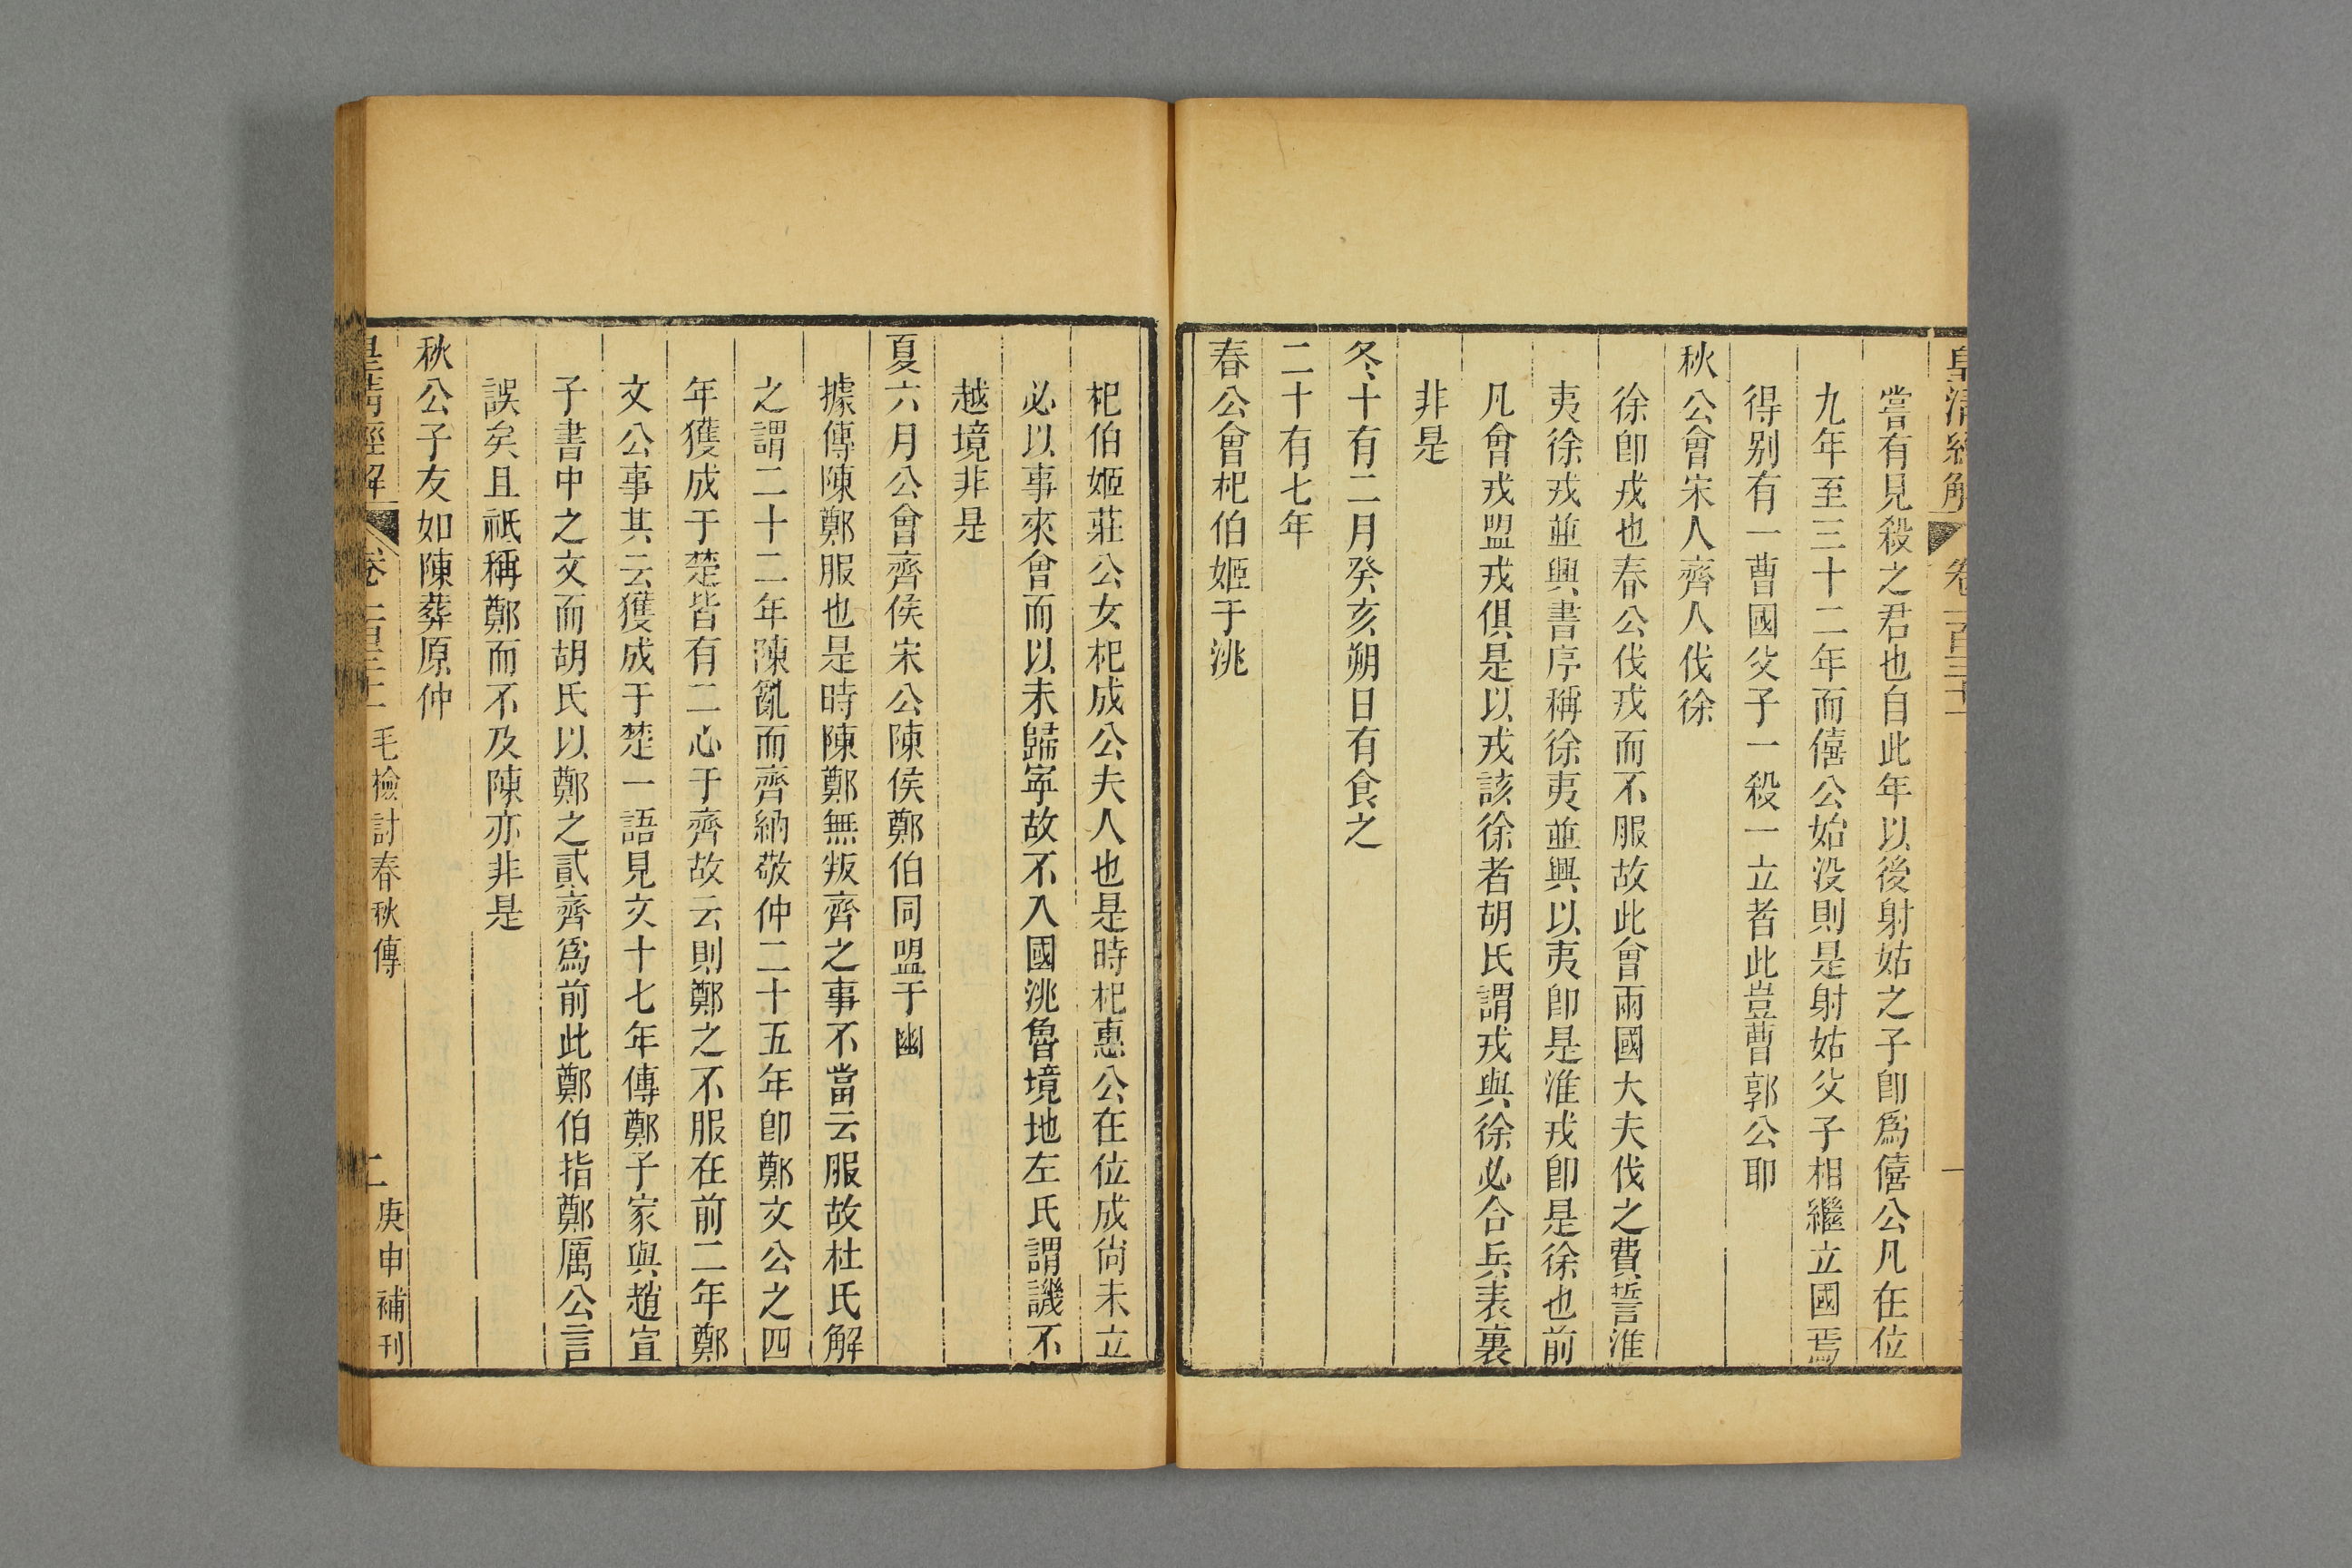 皇清經解 卷一百三十一
嘗有見殺之君也自此年以後射姑之子卽爲僖公凡在位
九年至三十二年而僖公始没則是射姑父子相繼立國焉
得别有一曹國父子一殺一立者此豈曹郭公耶
秋公會宋人齊人伐徐
徐卽戎也春公伐戎而不服故此會兩國大夫伐之費誓淮
夷徐戎並興書序稱徐夷並興以夷卽是淮戎卽是徐也前
凡會戎盟戎俱是以戎該徐者胡氏謂戎與徐必合兵表裏
非是
冬十有二月癸亥朔日有食之
二十有七年
春公會杞伯姬于洮
杞伯姬莊公女杞成公夫人也是時杞惠公在位成尚未立
必以事來會而以未歸寜故不入國洮魯境地左氏謂譏不
越境非是
夏六月公會齊侯宋公陳侯鄭伯同盟于幽
據傳陳鄭服也是時陳鄭無叛齊之事不當云服故杜氏解
之謂二十二年陳亂而齊納敬仲二十五年卽鄭文公之四
年獲成于楚皆有二心于齊故云則鄭之不服在前二年鄭
文公事其云獲成于楚一語見文十七年傳鄭子家與趙宣
子書中之文而胡氏以鄭之貳齊爲前此鄭伯指鄭厲公言
誤矣且祗稱鄭而不及陳亦非是
秋公子友如陳葬原仲
皇清經解 卷一百三十一 毛檢討春秋傳 二 庚申補刊